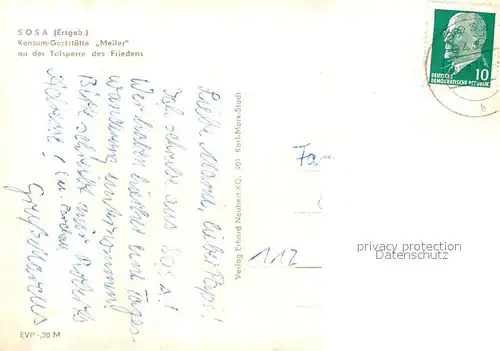 SOSA (Erzgeb.)
Konsum-Gaststätte „Meiler"
an der Talsperre des Friedens
Liebe Mama, lieber Papi!
Ich schreibe aus Sosa!
Wir haben hierher eine Tages-
wanderung unternommen!
Bitte schreibt mir
Adresse!
Gruß Marcus
Verlag Erhard Neubert KG, 901 Karl-Marx-Stadt
EVP -,20 M
10
DEUTSCHE
DEMOKRATISCHE REPUBLIK
b
Fam
112
privacy protection
Datenschutz